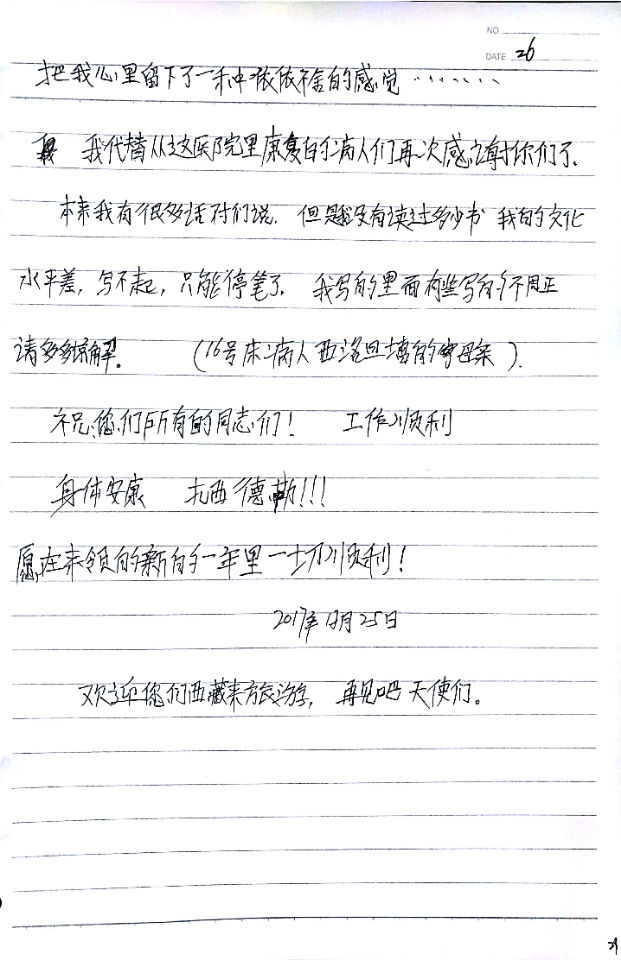 NO
DATE 26
把我心里留下了一种依依不舍的感觉········
我代替从这医院里康复的病人们再次感谢你们了.
本来我有很多话对们说. 但是我没有读过多少书 我的文化
水平差, 写不起, 只能停笔了. 我写的里面有些写的不周正
请多多谅解。 (16号床病人西洛旦增的母亲).
祝您们所有的同志们! 工作顺利
身体安康 扎西德勒!!!
愿在来领的新的一年里一切顺利!
2017年 月25日
欢迎您们西藏来旅游, 再见吧 天使们。